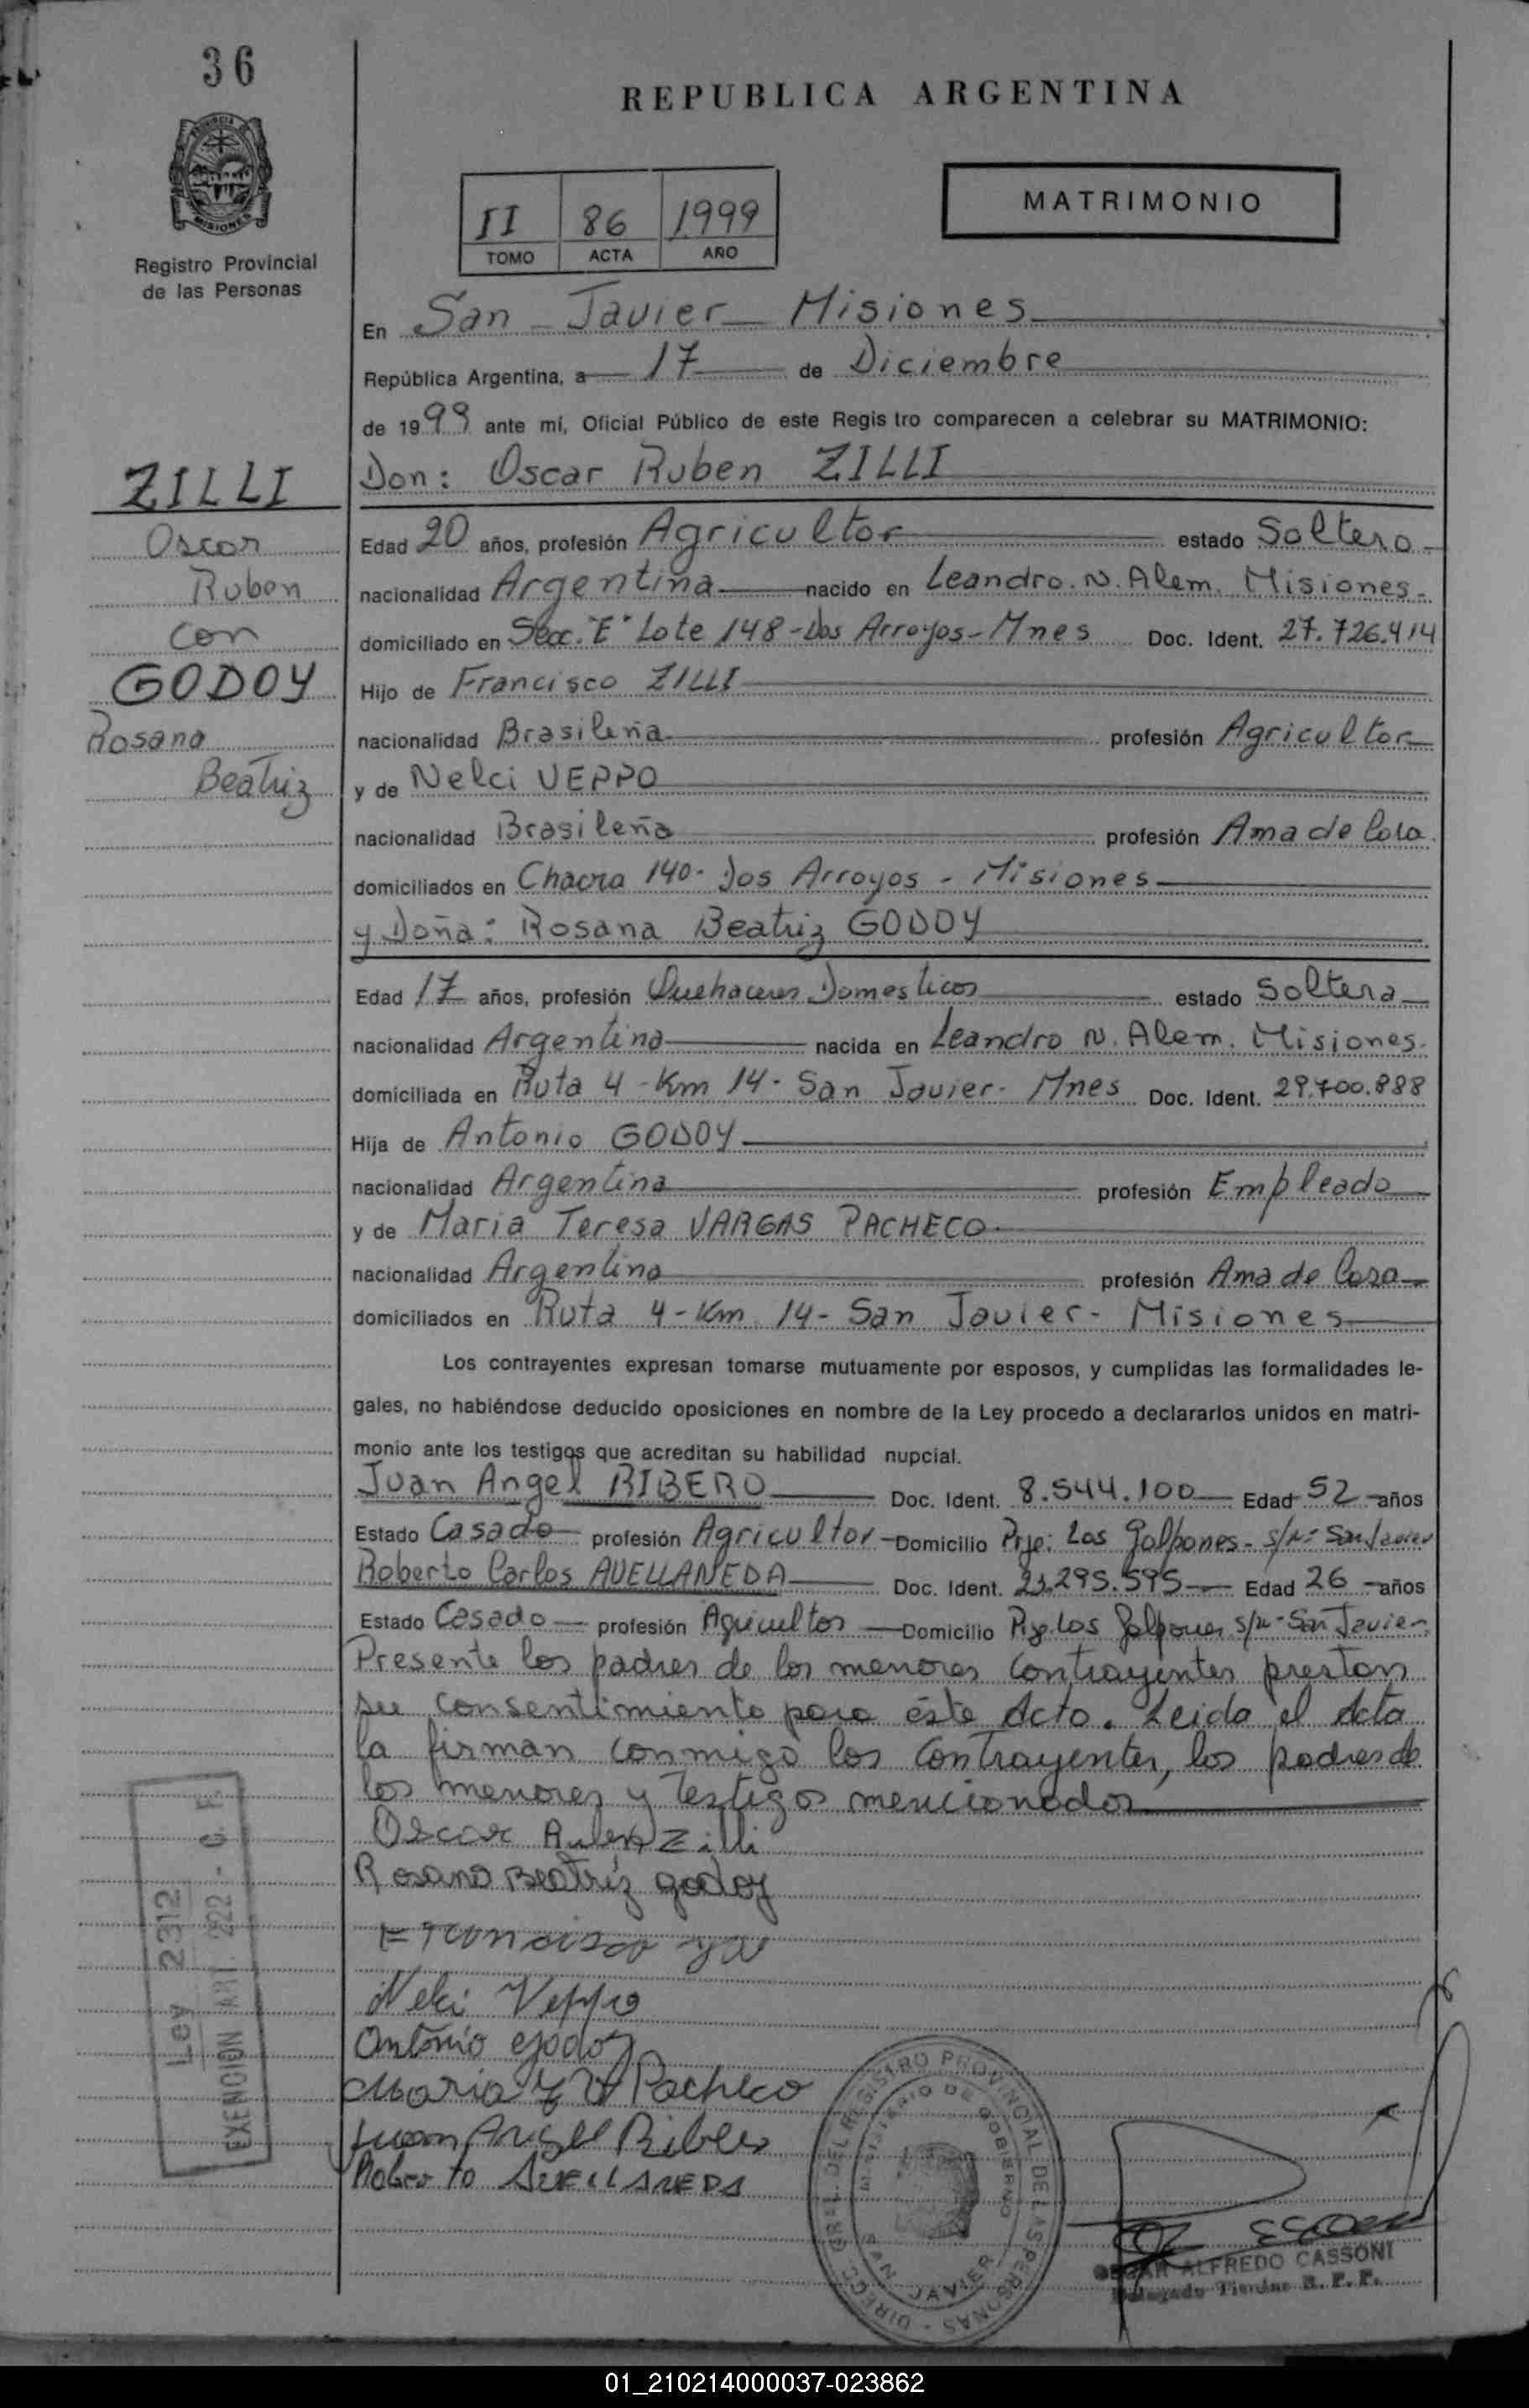 36
REPUBLICA ARGENTINA
PROVINCIA DE MISIONES
Registro Provincial
de las Personas
II 86 1999
TOMO ACTA AÑO
MATRIMONIO
En San Javier Misiones
República Argentina, a 17 de Diciembre
de 1999 ante mí, Oficial Público de este Regis tro comparecen a celebrar su MATRIMONIO:
ZILLI
Oscar
Ruben
con
GODOY
Rosana
Beatriz
Don: Oscar Ruben ZILLI
Edad 20 años, profesión Agricultor estado Soltero
nacionalidad Argentina nacido en Leandro. N. Alem. Misiones
domiciliado en Secc. "E" Lote 148 - Dos Arroyos - Mnes Doc. Ident. 27.726.414
Hijo de Francisco ZILLI
nacionalidad Brasileña profesión Agricultor
y de Nelci VEPPO
nacionalidad Brasileña profesión Ama de Casa
domiciliados en Chacra 140 - Dos Arroyos - Misiones
y Doña: Rosana Beatriz GODOY
Edad 17 años, profesión Quehaceres Domesticos estado Soltera
nacionalidad Argentina nacida en Leandro N. Alem. Misiones
domiciliada en Ruta 4 - Km 14 - San Javier - Mnes Doc. Ident. 29.700.888
Hija de Antonio GODOY
nacionalidad Argentina profesión Empleado
y de Maria Teresa VARGAS PACHECO
nacionalidad Argentina profesión Ama de Casa
domiciliados en Ruta 4 - Km 14 - San Javier - Misiones
Los contrayentes expresan tomarse mutuamente por esposos, y cumplidas las formalidades le-
gales, no habiéndose deducido oposiciones en nombre de la Ley procedo a declararlos unidos en matri-
monio ante los testigos que acreditan su habilidad nupcial.
Juan Angel RIBERO Doc. Ident. 8.544.100 Edad 52 años
Estado Casado profesión Agricultor Domicilio Pje: Los Galpones - s/n - San Javier
Roberto Carlos AVELLANEDA Doc. Ident. 23.295.595 Edad 26 años
Estado Casado profesión Agricultor Domicilio Pje. Los Galpones s/n - San Javier
Presente los padres de los menores contrayentes prestan
su consentimiento para éste Acto. Leida el Acta
la firman conmigo los contrayentes, los padres de
los menores y testigos mencionados
Oscar Ruben Zilli
Rosana Beatriz godoy
Francisco
Nelci Veppo
Antonio godoy
Maria T V Pacheco
Juan Angel Ribero
Roberto AVELLANEDA
Ley 2312
EXENCION ART. 222 - C. F.
DIRECC. GRAL. DEL REGISTRO PROVINCIAL DE LAS PERSONAS
MINISTERIO DE GOBIERNO
SAN JAVIER
OSCAR ALFREDO CASSONI
Delegado Titular R. P. P.
01_210214000037-023862